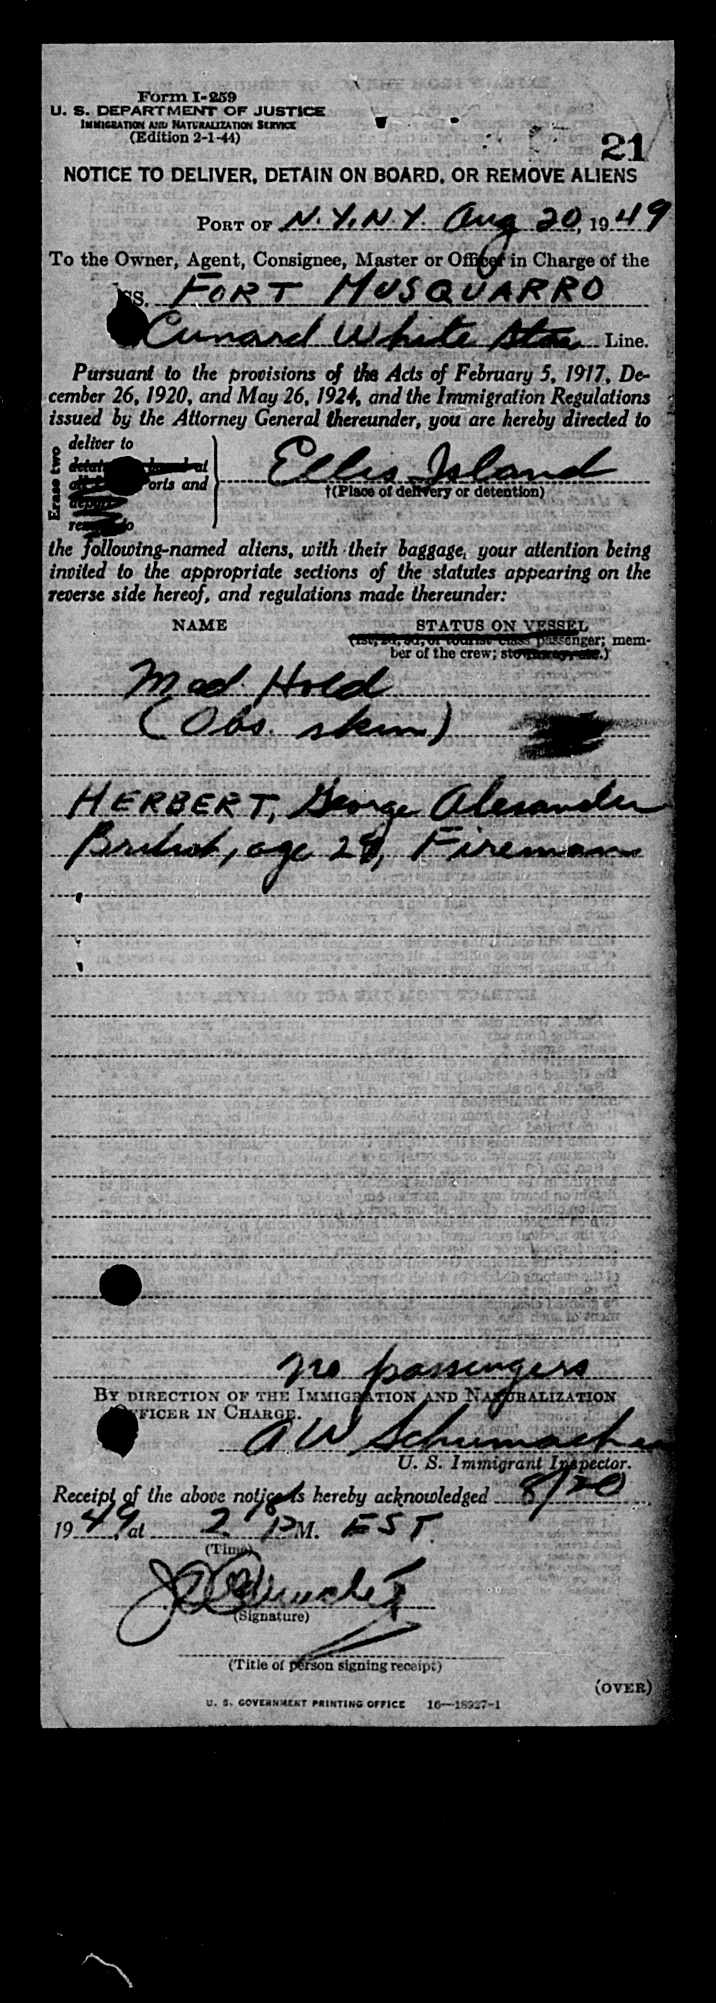 Form I-259
U. S. DEPARTMENT OF JUSTICE
IMMIGRATION AND NATURALIZATION SERVICE
(Edition 2-1-44)
21
NOTICE TO DELIVER, DETAIN ON BOARD, OR REMOVE ALIENS
PORT OF N.Y.N.Y. Aug 20, 1949
To the Owner, Agent, Consignee, Master or Officer in Charge of the
SS. FORT MUSQUARRO
Cunard White Star Line.
Pursuant to the provisions of the Acts of February 5, 1917, De-
cember 26, 1920, and May 26, 1924, and the Immigration Regulations
issued by the Attorney General thereunder, you are hereby directed to
Erase two
deliver to
at
orts and
Ellis Island
†(Place of delivery or detention)
the following-named aliens, with their baggage, your attention being
invited to the appropriate sections of the statutes appearing on the
reverse side hereof, and regulations made thereunder:
NAME STATUS ON VESSEL
(1st, 2d, 3d, or tourist class passenger; mem-
ber of the crew; stowaway, etc.)
Med. Hold
(Obs. skin)
HERBERT, George Alexander
British, age 28, Fireman
no passengers
BY DIRECTION OF THE IMMIGRATION AND NATURALIZATION
OFFICER IN CHARGE.
A W Schumacher
U. S. Immigrant Inspector.
Receipt of the above notice is hereby acknowledged 8/20
1949, at 2 PM. EST.
(Time)
(Signature)
(Title of person signing receipt)
(OVER)
U. S. GOVERNMENT PRINTING OFFICE 16—18927-1